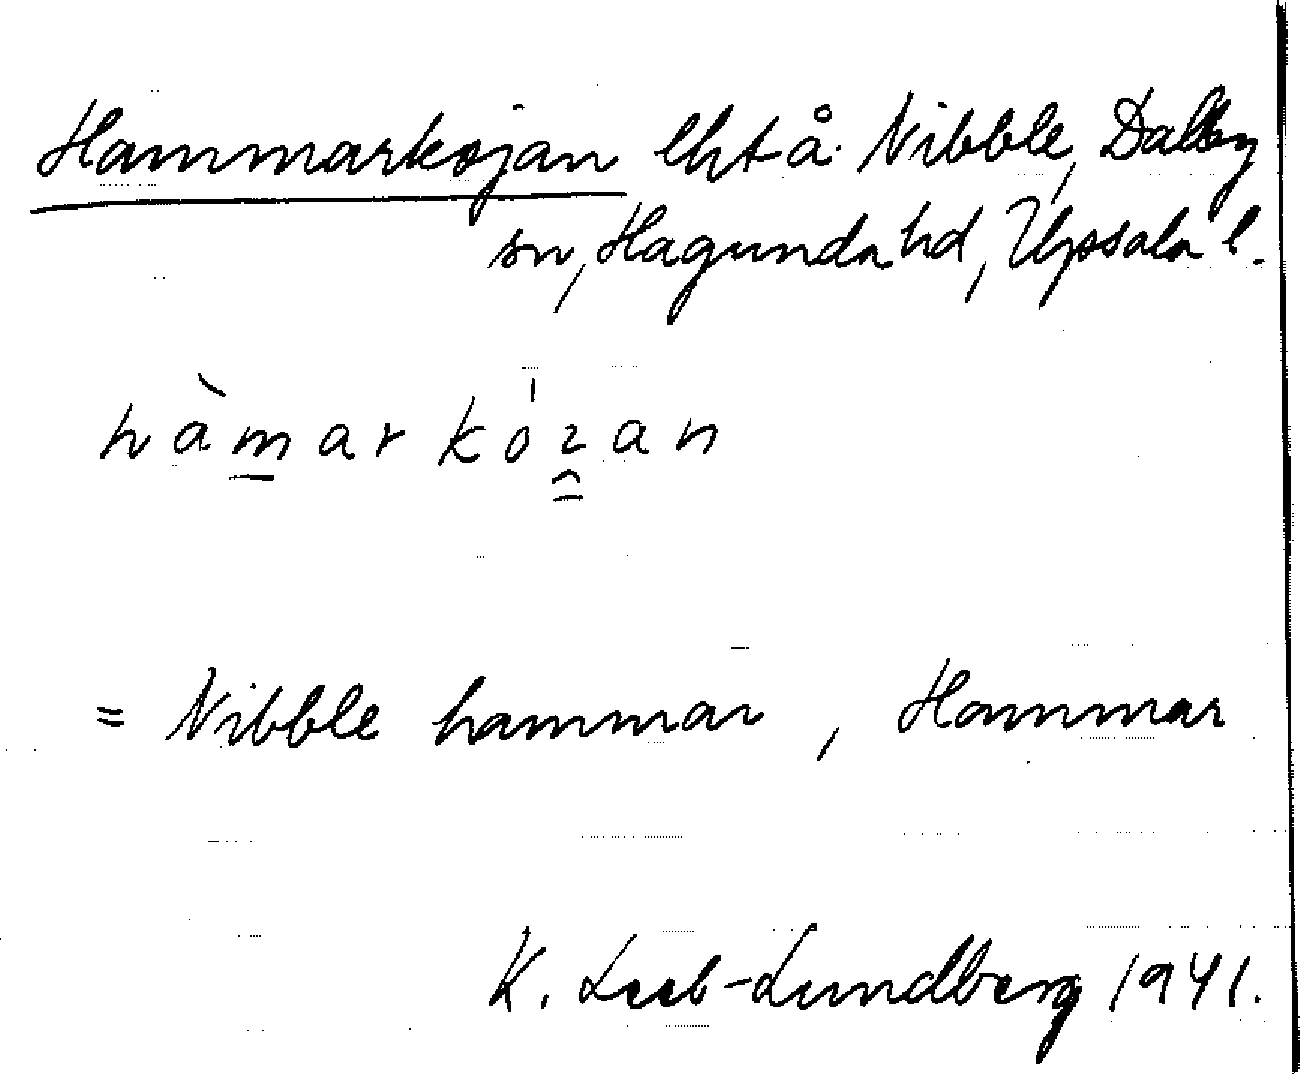 Hammarkojan lht å Nibble, Dalby
sn, Hagunda hd, Uppsala l.
hàmarkóɿan
= Nibble hammar, Hammar
K. Leeb-Lundberg 1941.